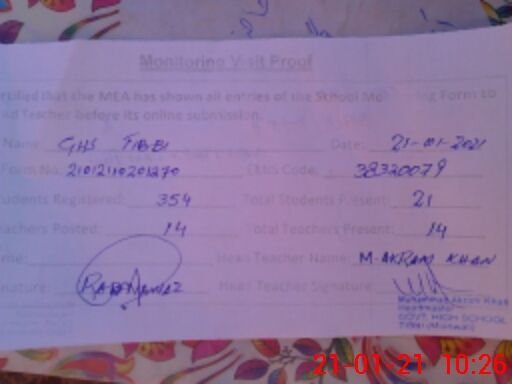 Monitoring Visit Proof
ertified that the MEA has shown all entries of the School Mo ing Form to
ad Teacher before its online submission.
Name: GHS TIBBI Date: 21-01-2021
Form No: 21012110201270 CMIS Code: 38320079
udents Registered: 354 Total Students Present: 21
achers Posted: 14 Total Teachers Present: 14
me: Head Teacher Name: M-AKRAM KHAN
nature: Head Teacher Signature:
Muhammad Akram Khan
Headmaster
GOVT. HIGH SCHOOL
21-01-21 10:26